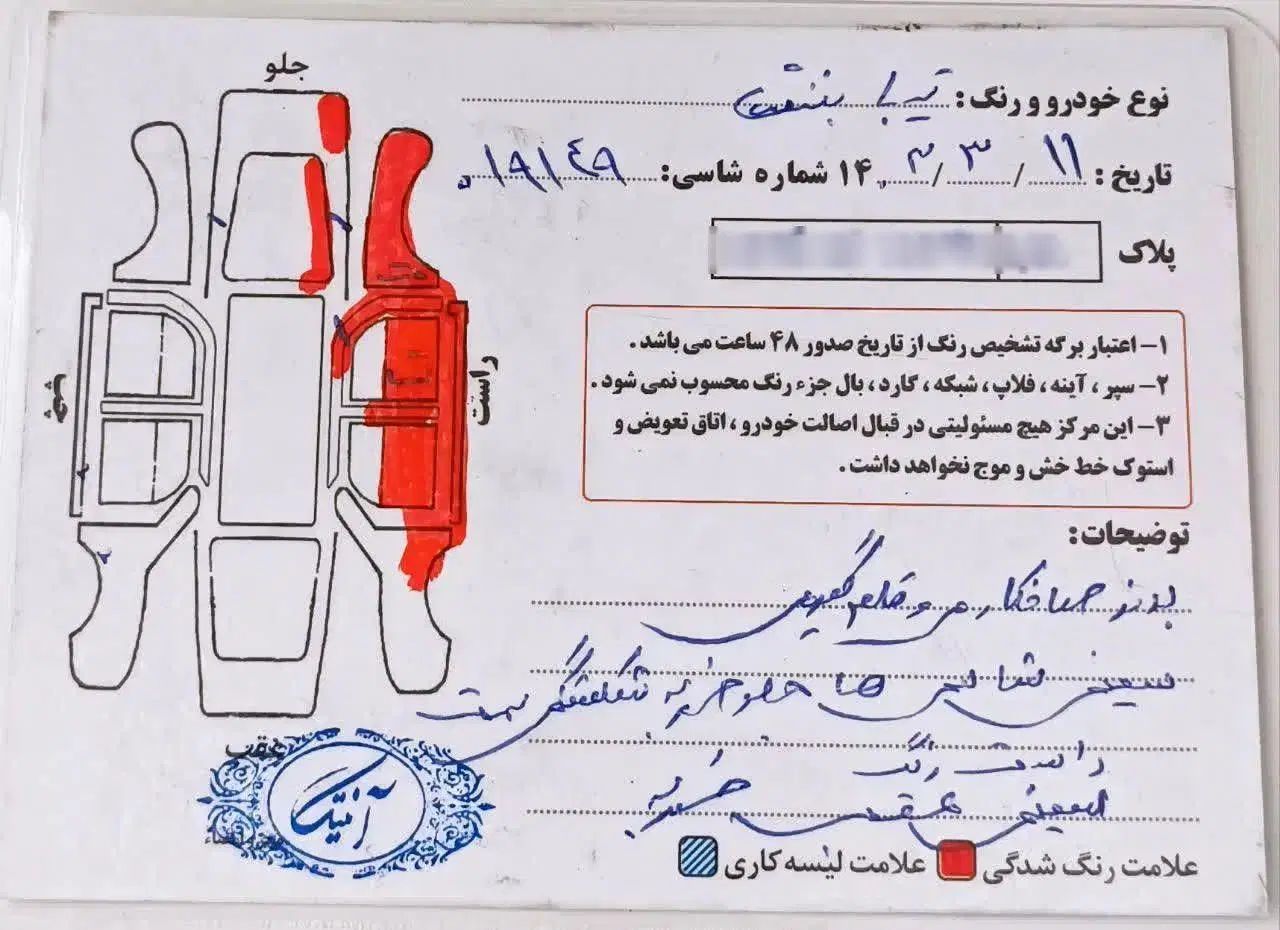 جلو
نوع خودرو و رنگ: تیبا بنفش
تاریخ: ۱۱ / ۳ / ۱۴۰۳ شماره شاسی: ۰۱۹۱۴۹
پلاک
۱– اعتبار برگه تشخیص رنگ از تاریخ صدور ۴۸ ساعت می باشد.
۲– سپر، آینه، فلاپ، شبکه، گارد، بال جزء رنگ محسوب نمی شود.
۳– این مرکز هیچ مسئولیتی در قبال اصالت خودرو، اتاق تعویض و
استوک خط خش و موج نخواهد داشت.
چپ
راست
توضیحات:
بدنه صافکاری و قلم گیری
سینی شاسی ها جلو ضربه شکستگی سمت
راست رنگ
سینی عقب ضربه
عقب
آنتیک
مهر و امضاء
علامت رنگ شدگی
علامت لیسه کاری